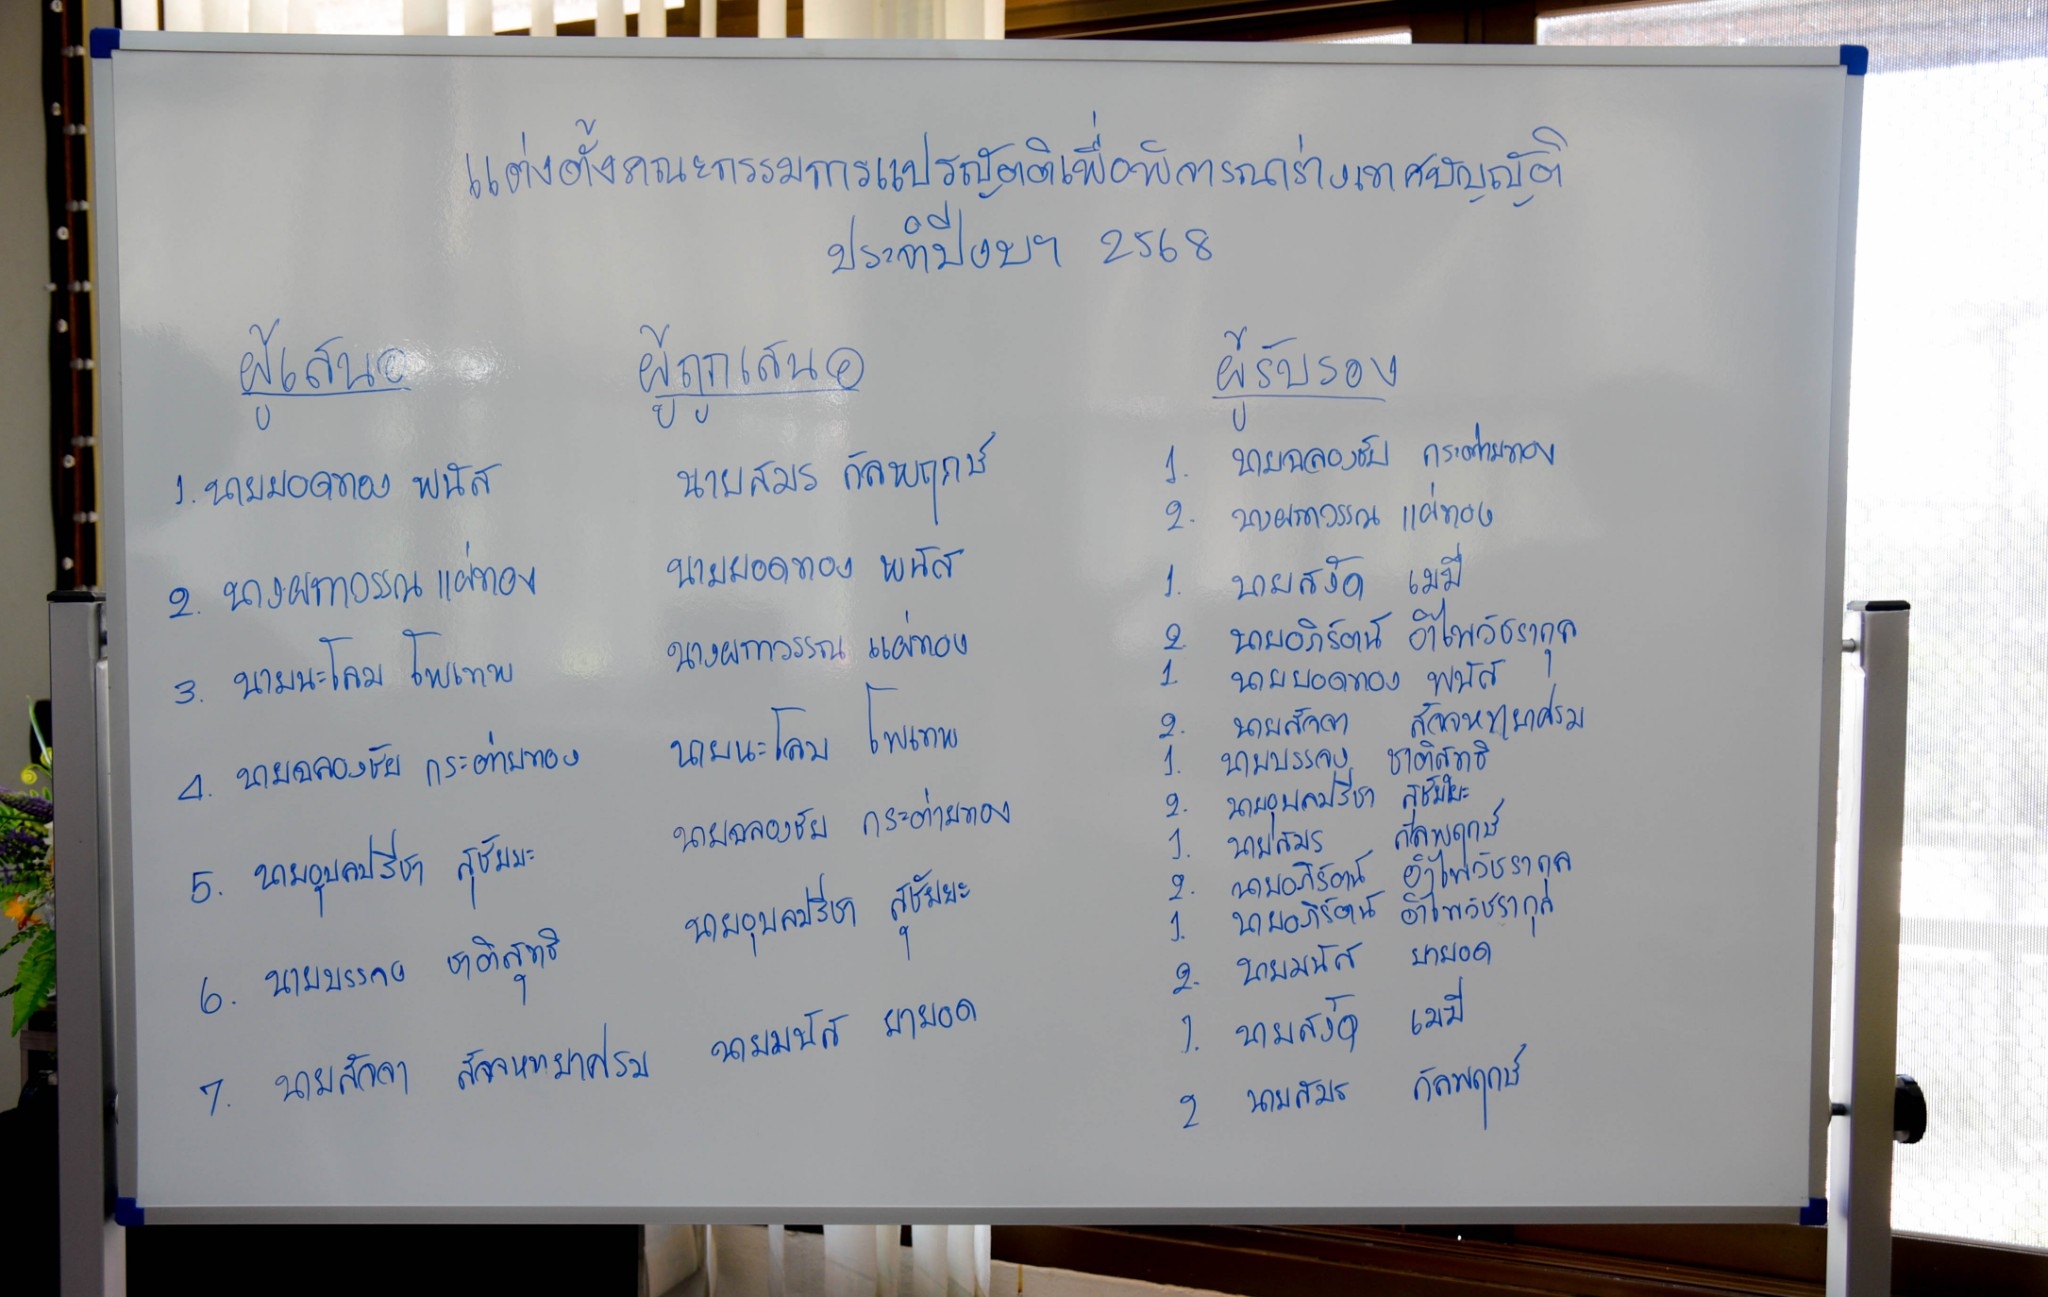 แต่งตั้งคณะกรรมการแปรญัตติเพื่อพิจารณาร่างเทศบัญญัติ
ประจำปีงบฯ 2568
ผู้เสนอ ผู้ถูกเสนอ ผู้รับรอง
1. นายยอดทอง พนัส นายสมร กัลพฤกษ์ 1. นายฉลองชัย กระต่ายทอง
2. นางผกาวรรณ แผ่ทอง
2. นางผกาวรรณ แผ่ทอง นายยอดทอง พนัส 1. นายสงัด เมมี่
2. นายอภิรัตน์ อำไพวัชรากุล
3. นายนะโลม โพเทพ นางผกาวรรณ แผ่ทอง 1. นายยอดทอง พนัส
2. นายสัจจา สัจจหทยาศรม
4. นายฉลองชัย กระต่ายทอง นายนะโลม โพเทพ 1. นายบรรจง ชาติสุทธิ
2. นายอุบลปรีชา สุชัยยะ
5. นายอุบลปรีชา สุชัยยะ นายฉลองชัย กระต่ายทอง 1. นายสมร กัลพฤกษ์
2. นายอภิรัตน์ อำไพวัชรากุล
6. นายบรรจง ชาติสุทธิ นายอุบลปรีชา สุชัยยะ 1. นายอภิรัตน์ อำไพวัชรากุล
2. นายมนัส ยายอด
7. นายสัจจา สัจจหทยาศรม นายมนัส ยายอด 1. นายสงัด เมมี่
2 นายสมร กัลพฤกษ์